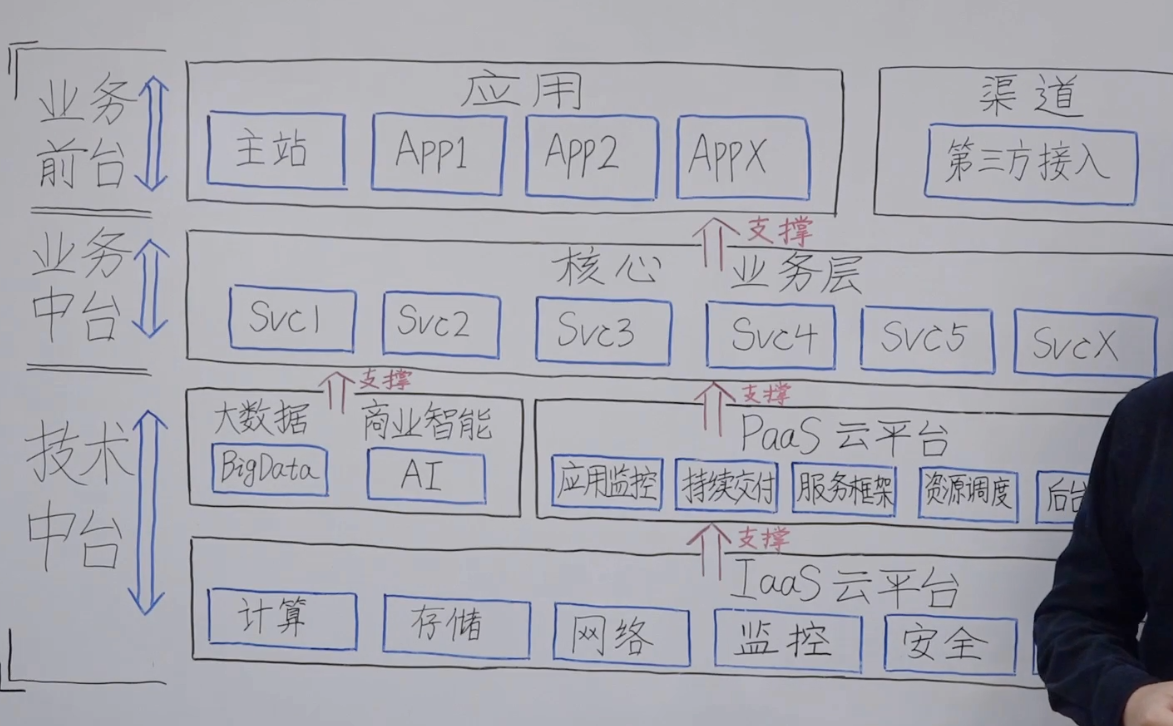 业务
前台
应用
主站 App1 App2 AppX
渠道
第三方接入
支撑
业务
中台
核心 业务层
Svc1 Svc2 Svc3 Svc4 Svc5 SvcX
支撑
支撑
技术
中台
大数据 商业智能
BigData AI
PaaS 云平台
应用监控 持续交付 服务框架 资源调度 后台
支撑
IaaS 云平台
计算 存储 网络 监控 安全